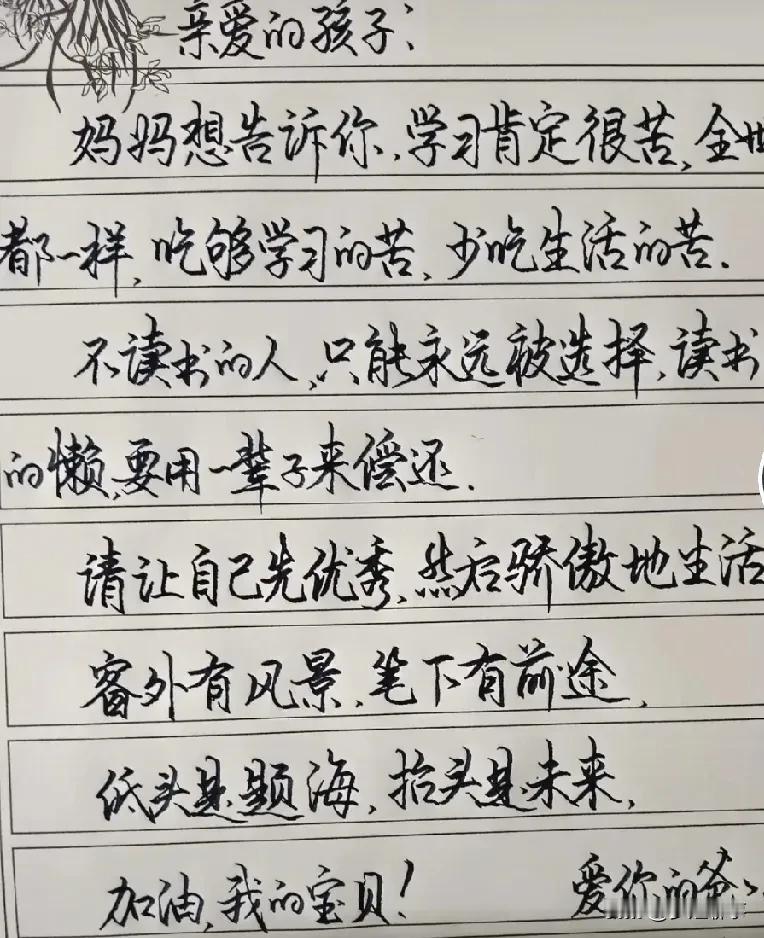 亲爱的孩子：
妈妈想告诉你，学习肯定很苦，全世
都一样，吃够学习的苦，少吃生活的苦.
不读书的人，只能永远被选择，读书
的懒，要用一辈子来偿还.
请让自己先优秀，然后骄傲地生活
窗外有风景，笔下有前途，
低头是题海，抬头是未来，
加油，我的宝贝！ 爱你的爸